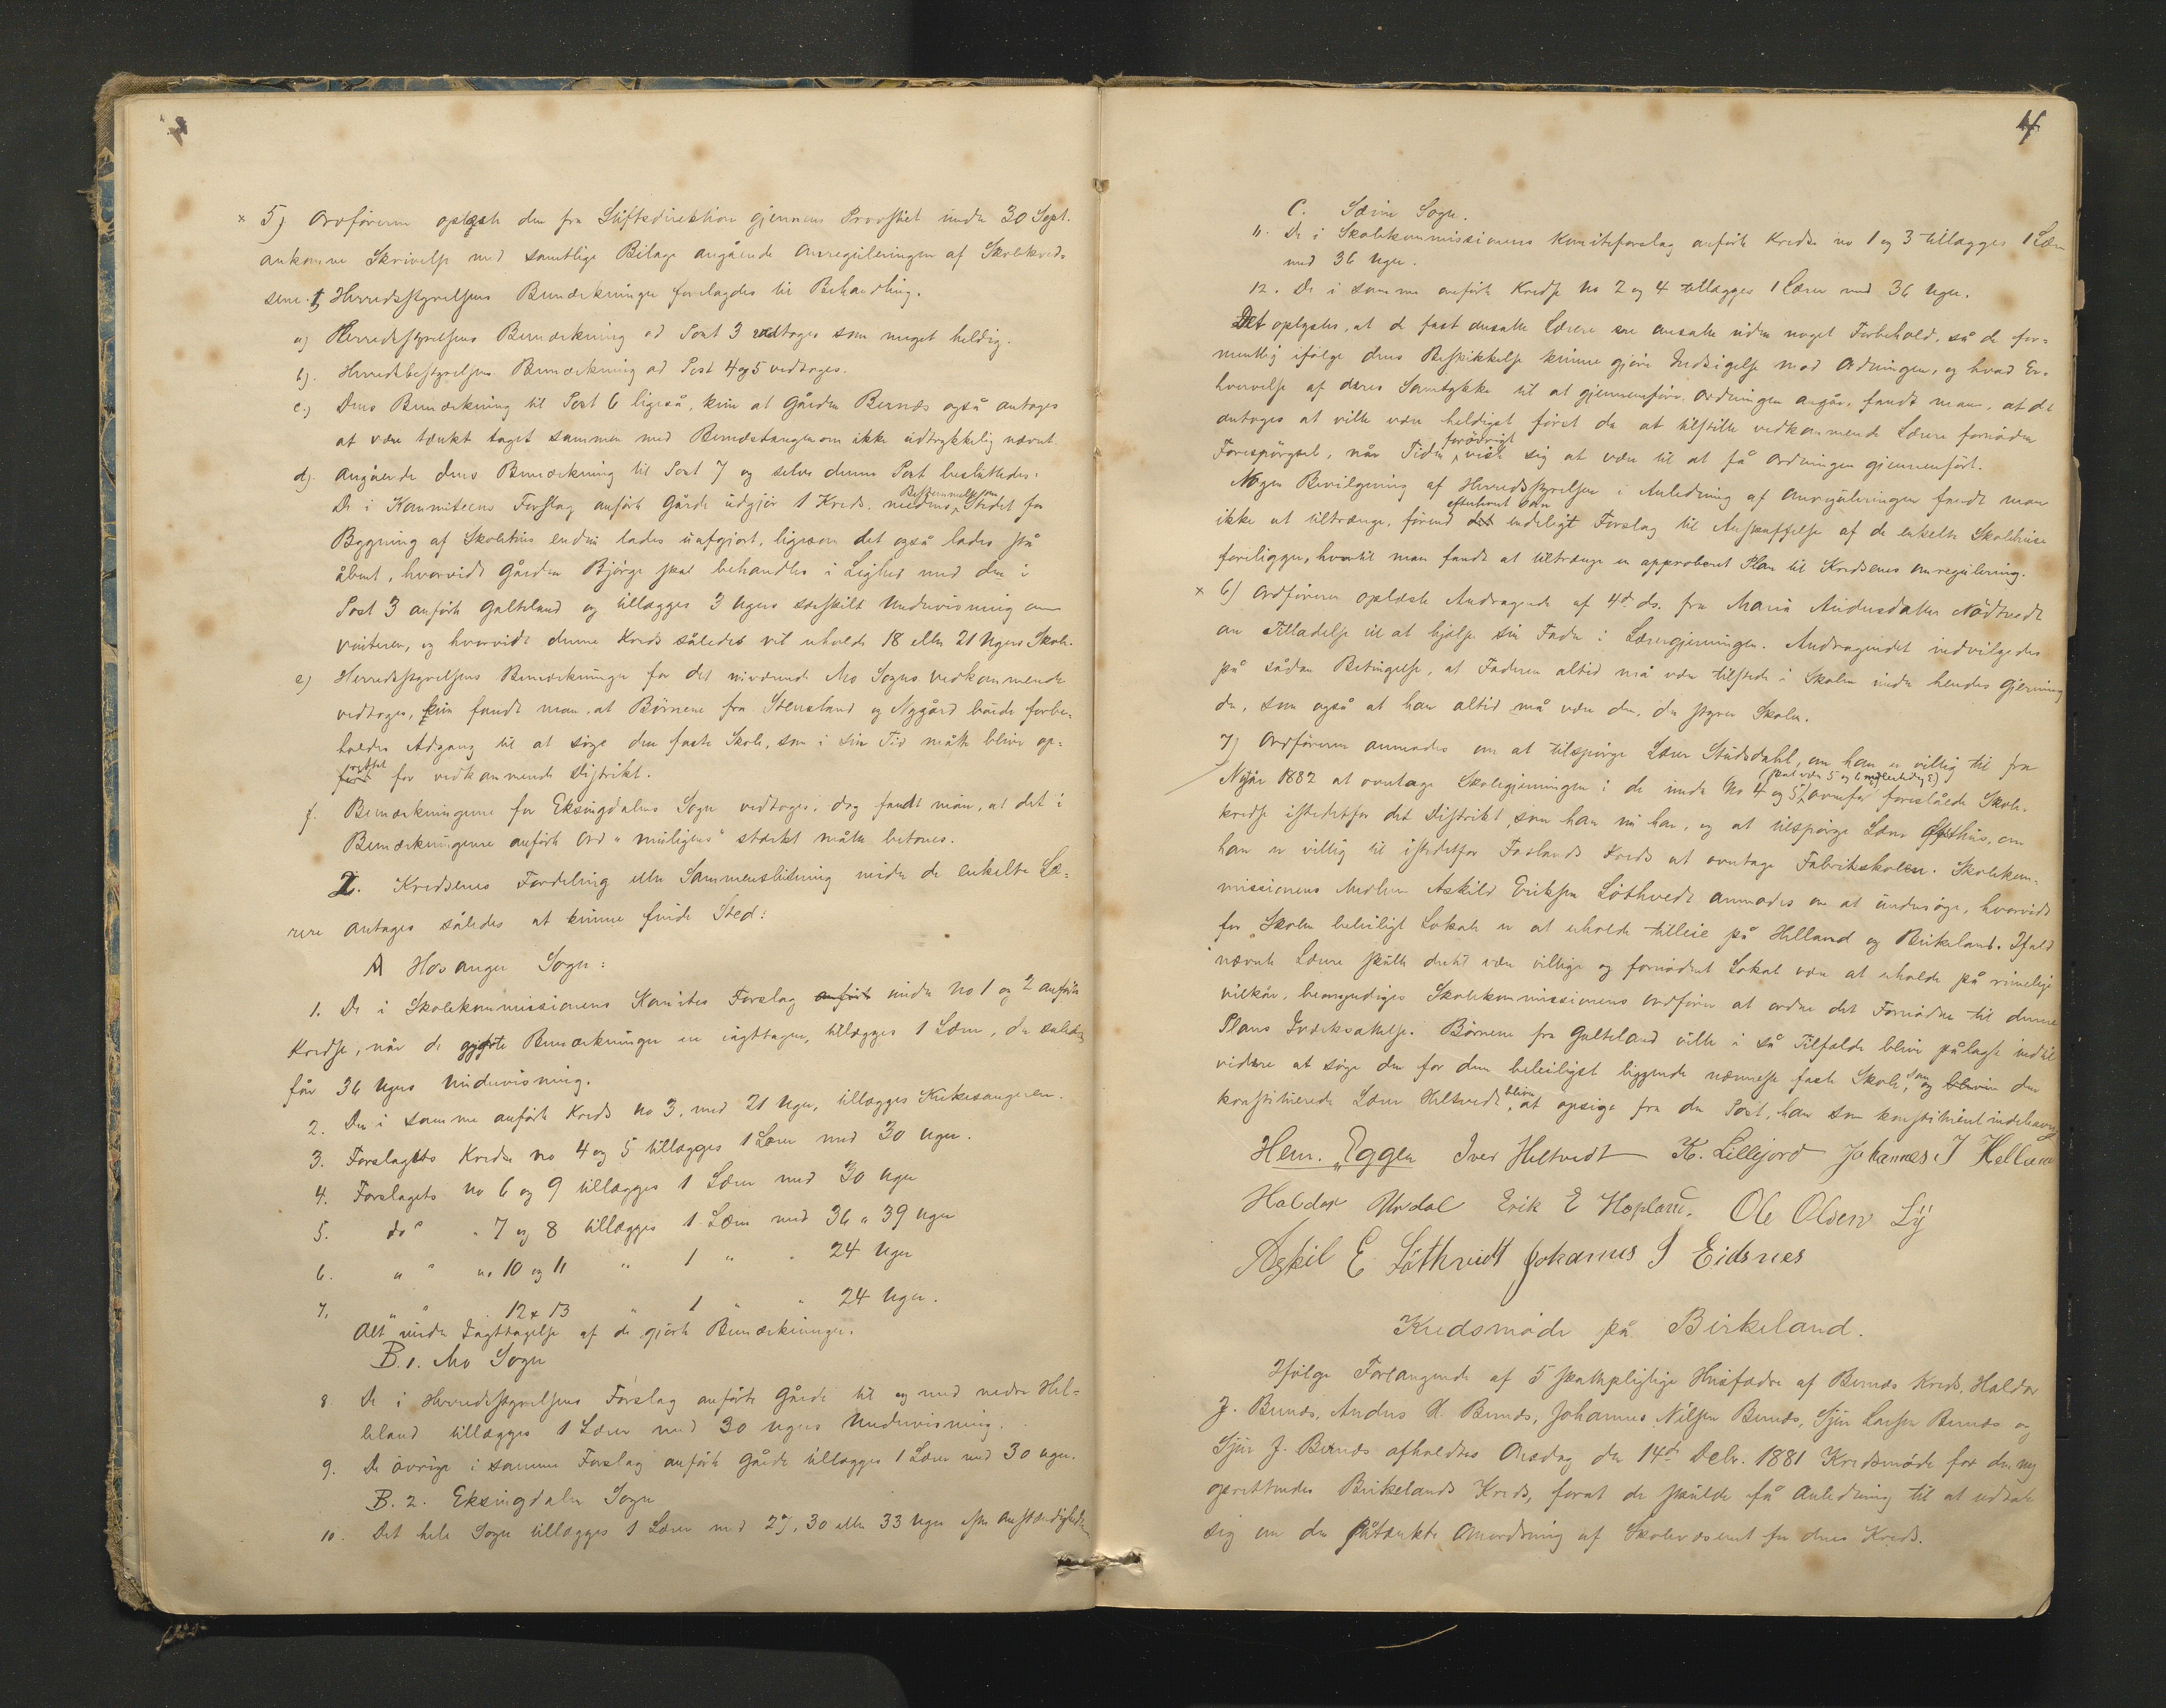 × 5) Ordføreren oplæste den fra Stiftsdirektion gjennem Provstiet under 30 Sept.
ankomne Skrivelse med samtlige Bilage angående Omreguleringen af Skolekred-
sene. 1 Herredsstyrelsens Bemærkninger forelagdes til Behandling.
a) Herredsstyrelsens Bemærkning ad Post 3 vedtoges som meget heldig.
b). Herredsbestyrelsens Bemærkning ad Post 4 og 5 vedtoges.
c.) Dens Bemærkning til Post 6 ligeså, kun at Gården Bernæs også antages
at være tænkt taget sammen med Bernæstangen om ikke udtrykkelig nævnt.
d). Angående dens Bemærkning til Post 7 og selve denne Post besluttedes:
De i Kommiteens Forslag anførte Gårde udgjør 1 Kreds, medens Bestemmelsen om Stedet for
Bygning af Skolehus endnu lades uafgjort, ligesom det også lades stå
åbent, hvorvidt Gården Bjørge skal behandles i Lighed med den i
Post 3 anførte Galteland og tillægges 3 Ugers særskilt Undervisning om
Vinteren, og hvorvidt denne Kreds således vil erholde 18 eller 21 Ugers Skole.
e) Herredsstyrelsens Bemærkninger for det nuværende Mo Sogns Vedkommende
vedtoges, kun fandt man, at Børnene fra Stensland og Nygård burde forbe-
holdes Adgang til at søge den faste Skole, som i sin Tid måtte blive op-
ført rettet for vedkommende Distrikt.
f. Bemærkningerne for Eksingdalens Sogn vedtoges, dog fandt man, at det i
Bemærkningerne anførte Ord "muligens" stærkt måtte betones.
2. Kredsenes Fordeling eller Sammenslutning under de enkelte Læ-
rere antages således at kunne finde Sted:
A Hosanger Sogn:
1. De i Skolekommissionens Komites Forslag anført under No 1 og 2 anførte
Kredse, når de gjorte Bemærkninger er iagttagen, tillægges 1 Lærer, der således
får 36 Ugers Undervisning.
2. Den i samme anførte Kreds No 3, med 21 Uger, tillægges Kirkesangeren.
3. Forslagets Kredse no 4 og 5 tillægges 1 Lærer med 30 Uger.
4. Forslagets No 6 og 9 tillægges 1 Lærer med 30 Uger
5. do " 7 og 8 tillægges 1 Lærer med 36 a 39 Uger
6. " " no 10 og 11 " 1 " " 24 Uger
7. " " 12 & 13 " 1 " " 24 Uger.
Alt under Iagttagelse af de gjorte Bemærkninger.
B. 1. Mo Sogn
8 De i Herredsstyrelsens Forslag anførte Gårde til og med nedre Hel-
leland tillægges 1 Lærer med 30 Ugers Undervisning.
9. De øvrige i samme Forslag anførte Gårde tillægges 1 Lærer med 30 Uger.
B. 2. Eksingdalen Sogn
10. Det hele Sogn tillægges 1 Lærer med 27, 30 eller 33 Uger efter Omstændighederne
4
C. Sæim Sogn.
11. De i Skolekommissionens Komiteforslag anførte Kredse no 1 og 3 tillægges 1 Lærer
med 36 Uger.
12. De i samme anførte Kredse No 2 og 4 tillægges 1 Lærer med 36 Uger.
Det oplystes, at de fast ansatte Lærere ere ansatte uden noget Forbehold, så de for-
mentlig ifølge deres Beskikkelse kunne gjøre Indsigelse mod Ordningen, og hvad Er-
hvervelse af deres Samtykke til at gjennemføre Ordningen angår, fandt man, at det
antoges at ville være heldigst først da at tilstille vedkommende Lærere fornøden
Forespørgsel, når Tiden forøvrigt viste sig at være til at få Ordningen gjennemført.
Nogen Bevilgning af Herredsstyrelsen i Anledning af Omreguleringen fandt man
ikke at tiltrænges, førend det efterhvert som endeligt Forslag til Anskaffelse af de enkelte Skolehuse
foreligger, hvortil man fandt at tiltrænge en approberet Plan til Kredsenes Omregulering.
× 6) Ordføreren oplæste Andragende af 4de ds. fra Maria Andersdatter Nådtvedt
om Tilladelse til at hjælpe sin Fader i Lærergjerningen. Andragendet indvilgedes
på sådan Betingelse, at Faderen altid må være tilstede i Skolen under hendes Gjerning
der, som også at han altid må være den, der styrer Skolen.
7) Ordføreren anmodes om at tilspørge Lærer Studsdahl, om han er villig til fra
Nytår 1882 at overtage Skolegjerningen i de under No 4 og 5 (skal være 5 og 6 ) ovenfor foreslåede Skole-
kredse istedetfor det Distrikt, som han nu har, og at tilspørge Lærer Øfsthus, om
han er villig til istedetfor Faslands Kreds at overtage Fabrikskolen. Skolekom-
missionens Medlem Askild Eriksen Løthvedt anmodes om at undersøge, hvorvidt
for Skolen beleiligt Lokale er at erholde tilleie på Helland og Birkeland. Ifald
nævnte Lærere skulle dertil være villige og fornødent Lokal være at erholde på rimelige
vilkår, bemyndiges Skolekommissionens Ordfører at ordne det Fornødne til denne
Plans Iværksættelse. Børnene fra Galteland ville i så Tilfælde blive pålagte indtil
videre at søge den for dem beleiligst liggende nærmeste faste Skole, som og bliver den
konstituerede Lærer Heltvedt bliver at opsige fra den Post, han som konstitueret indehaver
Hem. Eggen Iver Heltvedt K. Lillejord Johannes J Helland
Haldor Urdal Erik E Hopland. Ole Olsen Lÿ
Askil E Løthveidt Johannes J Eidsnes
Kredsmøde på Birkeland.
Ifølge Forlangende af 5 skattepligtige Husfædre af Bernæs Kreds, Haldor
J. Bernæs, Anders H. Bernæs, Johannes Nilsen Bernæs, Sjur Larsen Bernæs og
Sjur J. Bernæs afholdtes Onsdag den 14de Debr. 1881 Kredsmøde for den ny
oprettendes Birkelands Kreds, forat de skulde få Anledning til at udtale
sig om den påtænkte Omordning af Skolevæsenet for deres Kreds.